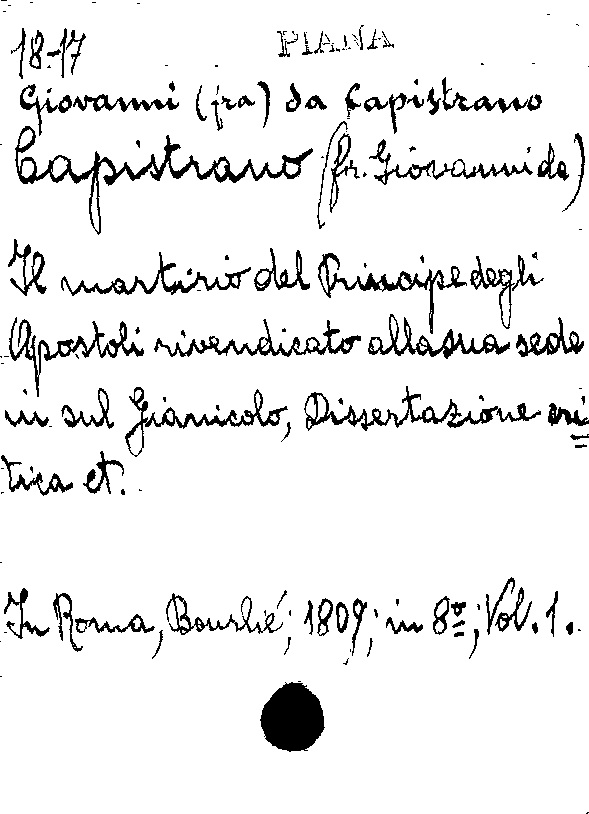 18-17 PIANA
Giovanni (fra) da Capistrano
Capistrano (fr. Giovanni da)
Il martirio del Principe degli
Apostoli rivendicato alla sua sede
in sul Gianicolo, Dissertazione cri
tica et.
In Roma, Bourlié; 1809; in 8º; Vol. 1.